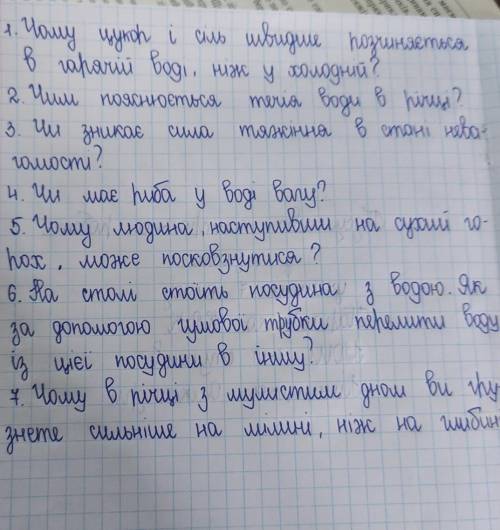 1. Чому цукор і сіль швидше розчиняється
в гарячій воді, ніж у холодний?
2. Чим пояснюється течія води в річці?
3. Чи зникає сила тяжіння в стані нева-
гомості?
4. Чи має риба у воді вагу?
5. Чому людина, наступивши на сухий го-
рох, може посковзнутися?
6. На столі стоїть посудина з водою. Як
за допомогою гумової трубки перелити воду
із цієї посудини в іншу?
7. Чому в річці з мулистим дном ви гру-
знете сильніше на мілині, ніж на глибин